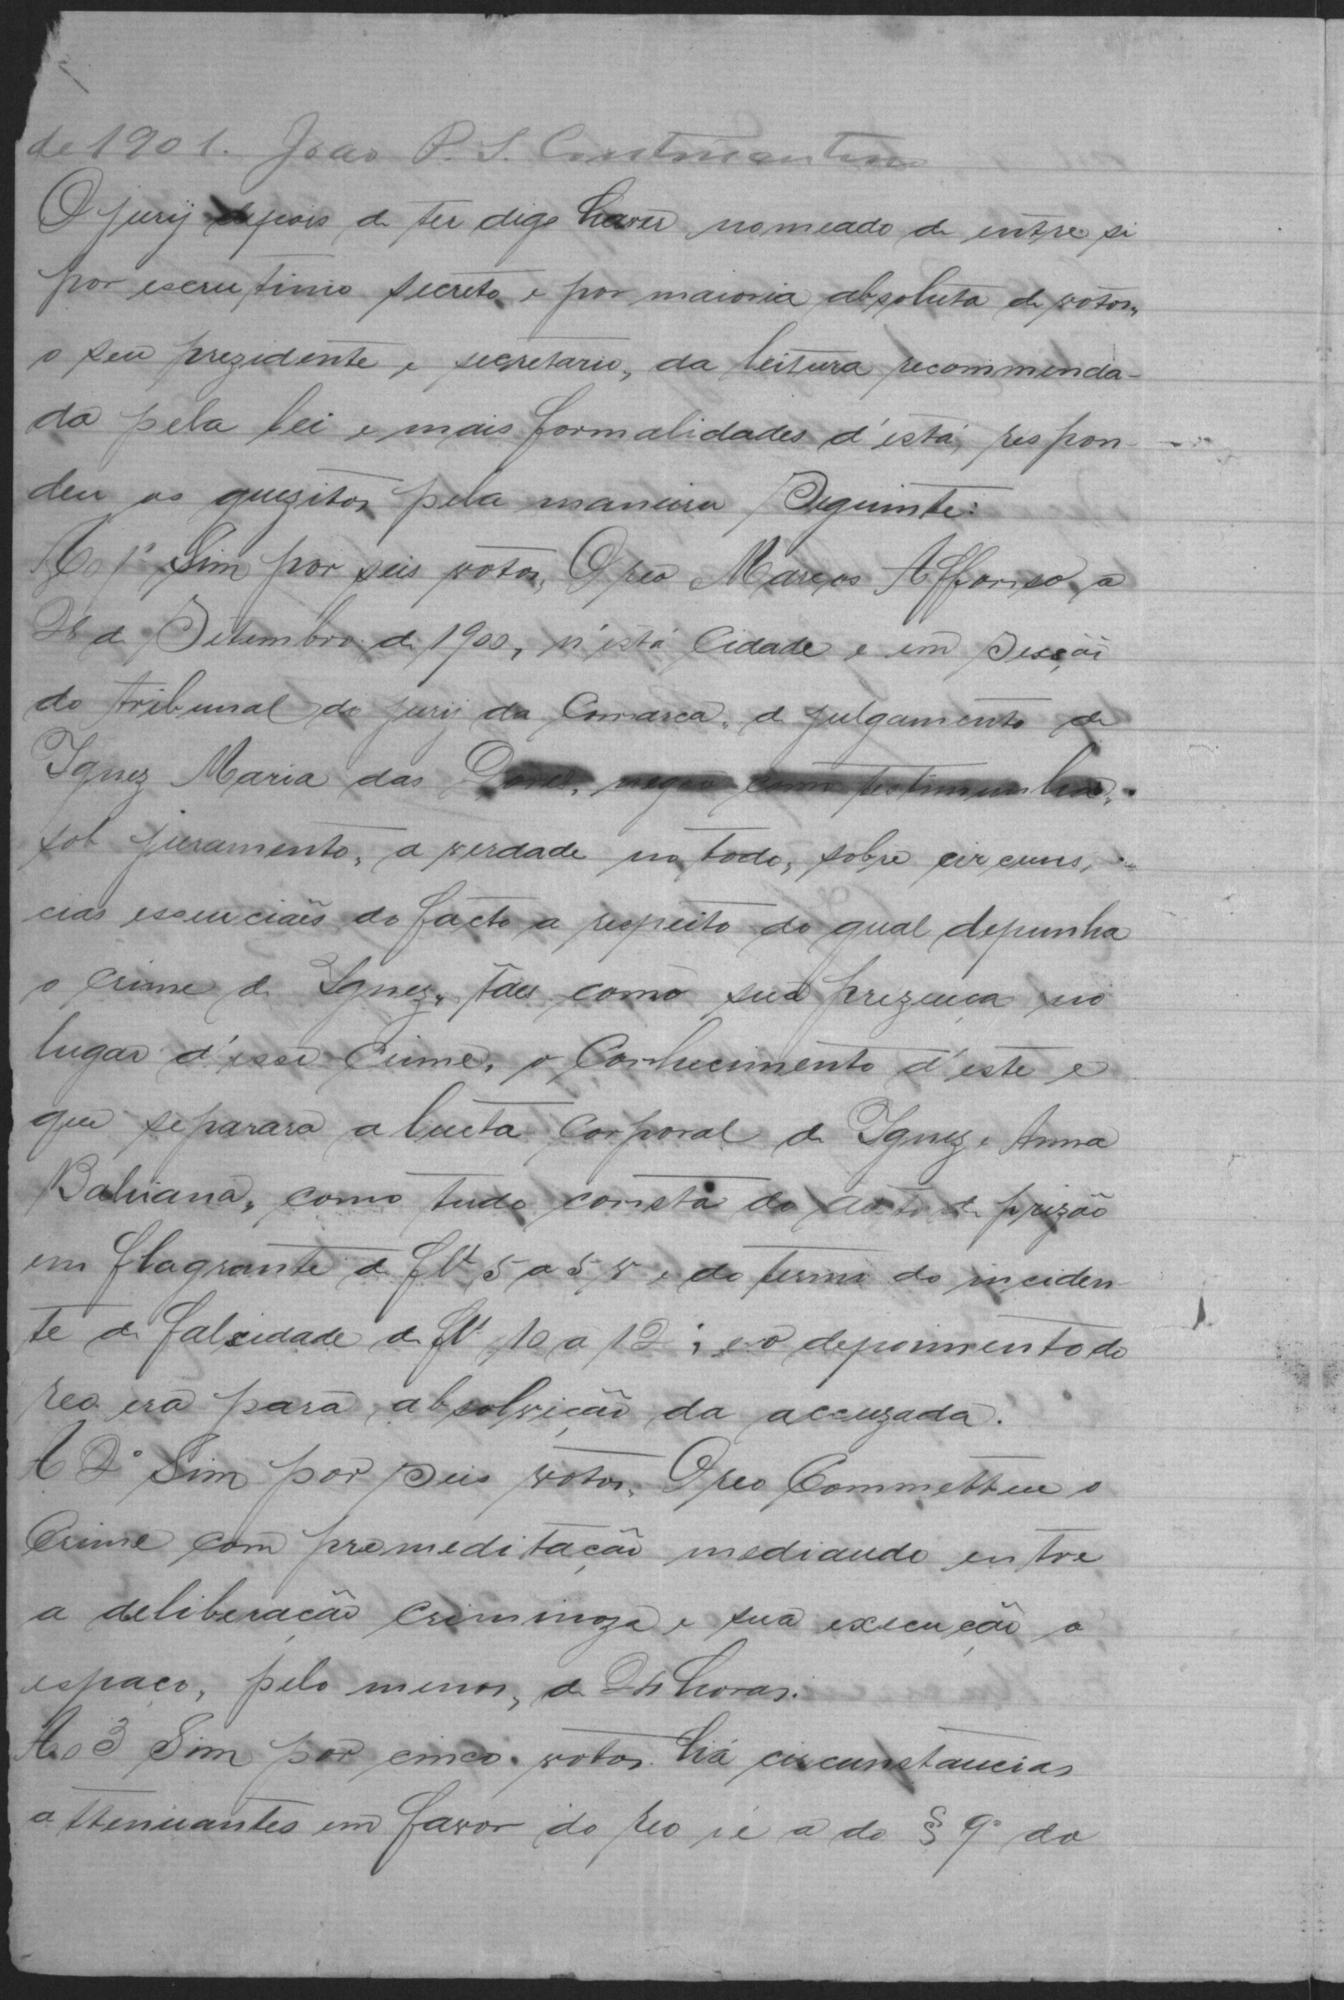 de 1901. João P. S.
O jury depois de ter digo haver nomeado de entre si
por escrutinio secreto e por maioria absoluta de votos,
o seu prezidente e secretario, da leitura recommenda-
da pela lei e mais formalidades d'esta, respon-
deu os quezitos pela maneira Seguinte:
Ao 1º Sim por seis votos, O reo Marcos Affonso a
de Setembro de 1900, n'esta Cidade e em Secção
do tribunal do jury da Comarca, de julgamento de
Ignez Maria das Dores, negou como testimunha,
sob juramento, a verdade no todo, sobre circuns,
cias essenciaes do facto a respeito do qual depunha
o crime de Ignez, taes como sua prezença no
lugar d'esse Crime, o Conhecimento d'este e
que separara a lucta Corporal de Ignez e Anna
Bahiana, como tudo consta do auto de prizão
em flagrante de fls 5 a 5 v e do termo do inciden-
te de falcidade de fls 10 a 12; e o depoimento do
reo era para absolvição da accuzada.
A 2º Sim por seis votos, O reo Commetteu o
Crime com premeditação mediando entre
a deliberação criminoza e sua execução o
espaço, pelo menos, de 24 horas.
Ao 3 Sim por cinco votos. há circunstancias
attenuantes em favor do reo i é a do § 9º do